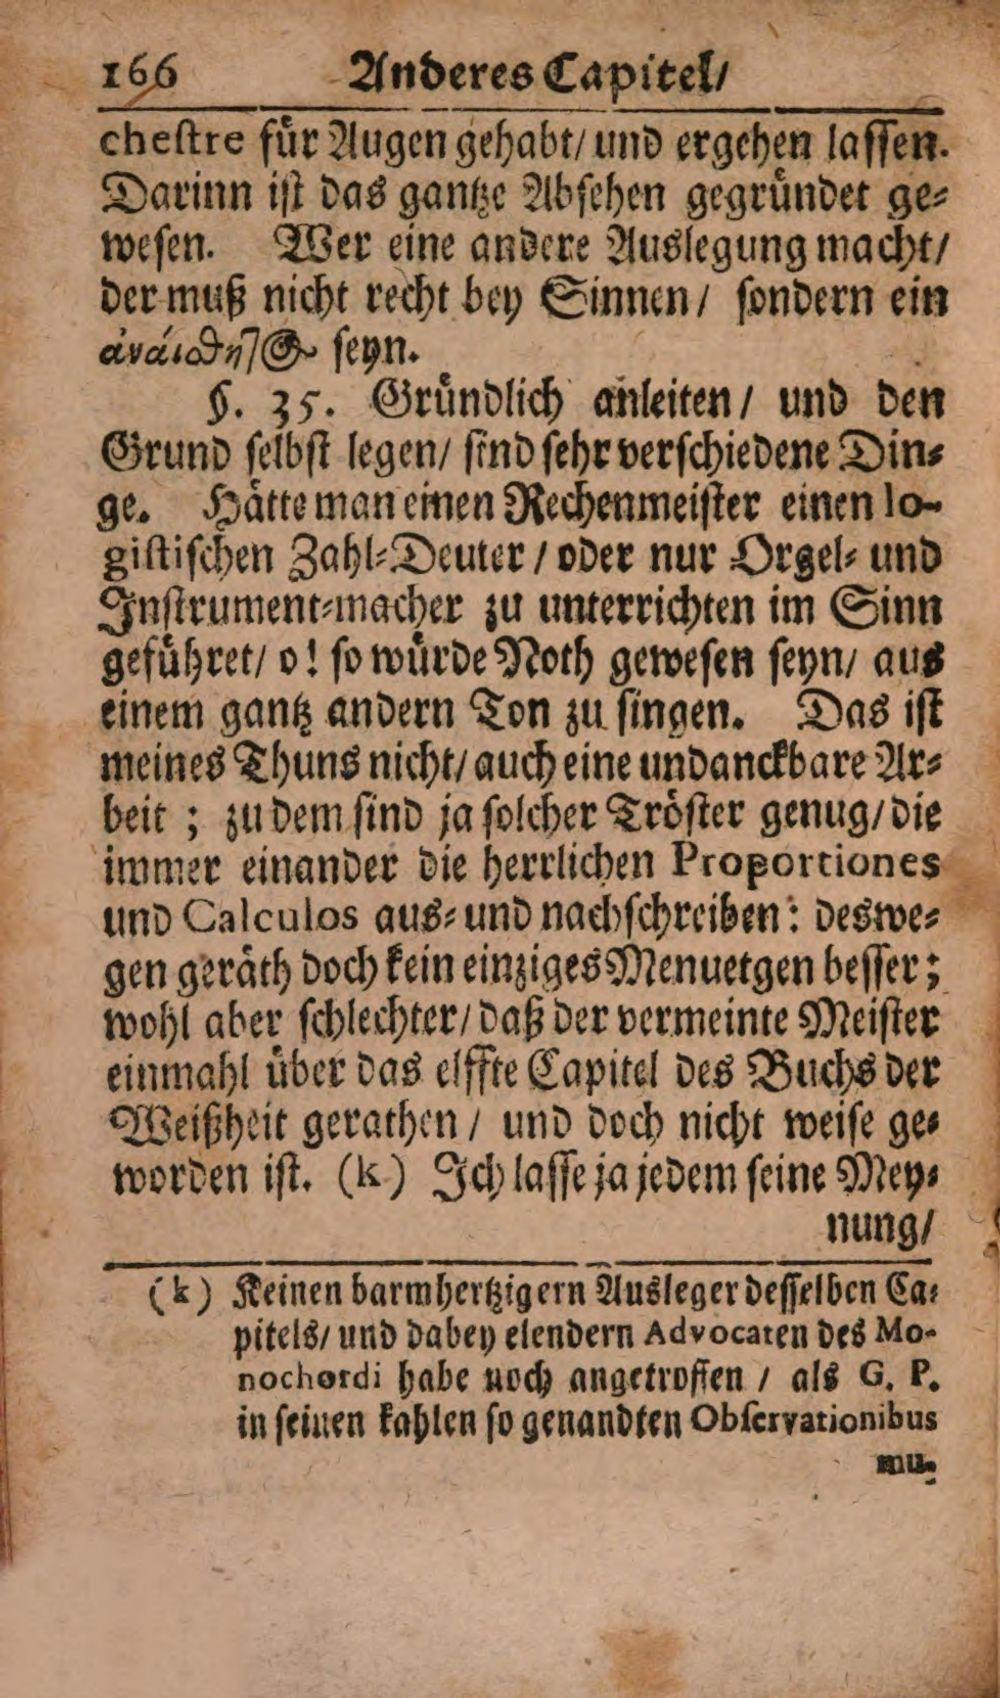 166 Anderes Capitel/
chestre für Augen gehabt/ und ergehen lassen.
Darinn ist das gantze Absehen gegründet ge-
wesen. Wer eine andere Auslegung macht/
der muß nicht recht bey Sinnen/ sondern ein
ἀνάιϑητος seyn.
§. 35. Gründlich anleiten/ und den
Grund selbst legen/ sind sehr verschiedene Din-
ge. Hätte man einen Rechenmeister einen lo-
gistischen Zahl-Deuter / oder nur Orgel- und
Instrument-macher zu unterrichten im Sinn
geführet/ o! so würde Noth gewesen seyn/ aus
einem gantz andern Ton zu singen. Das ist
meines Thuns nicht/ auch eine undanckbare Ar-
beit ; zu dem sind ja solcher Tröster genug/ die
immer einander die herrlichen Proportiones
und Calculos aus- und nachschreiben: deswe-
gen geräth doch kein einziges Menuetgen besser;
wohl aber schlechter/ daß der vermeinte Meister
einmahl über das elffte Capitel des Buchs der
Weißheit gerathen / und doch nicht weise ge-
worden ist. (k) Ich lasse ja jedem seine Mey-
nung/
(k) Keinen barmhertzigern Ausleger desselben Ca-
pitels/ und dabey elendern Advocaten des Mo-
nochordi habe noch angetroffen / als G. P.
in seinen kahlen so genandten Observationibus
mu-